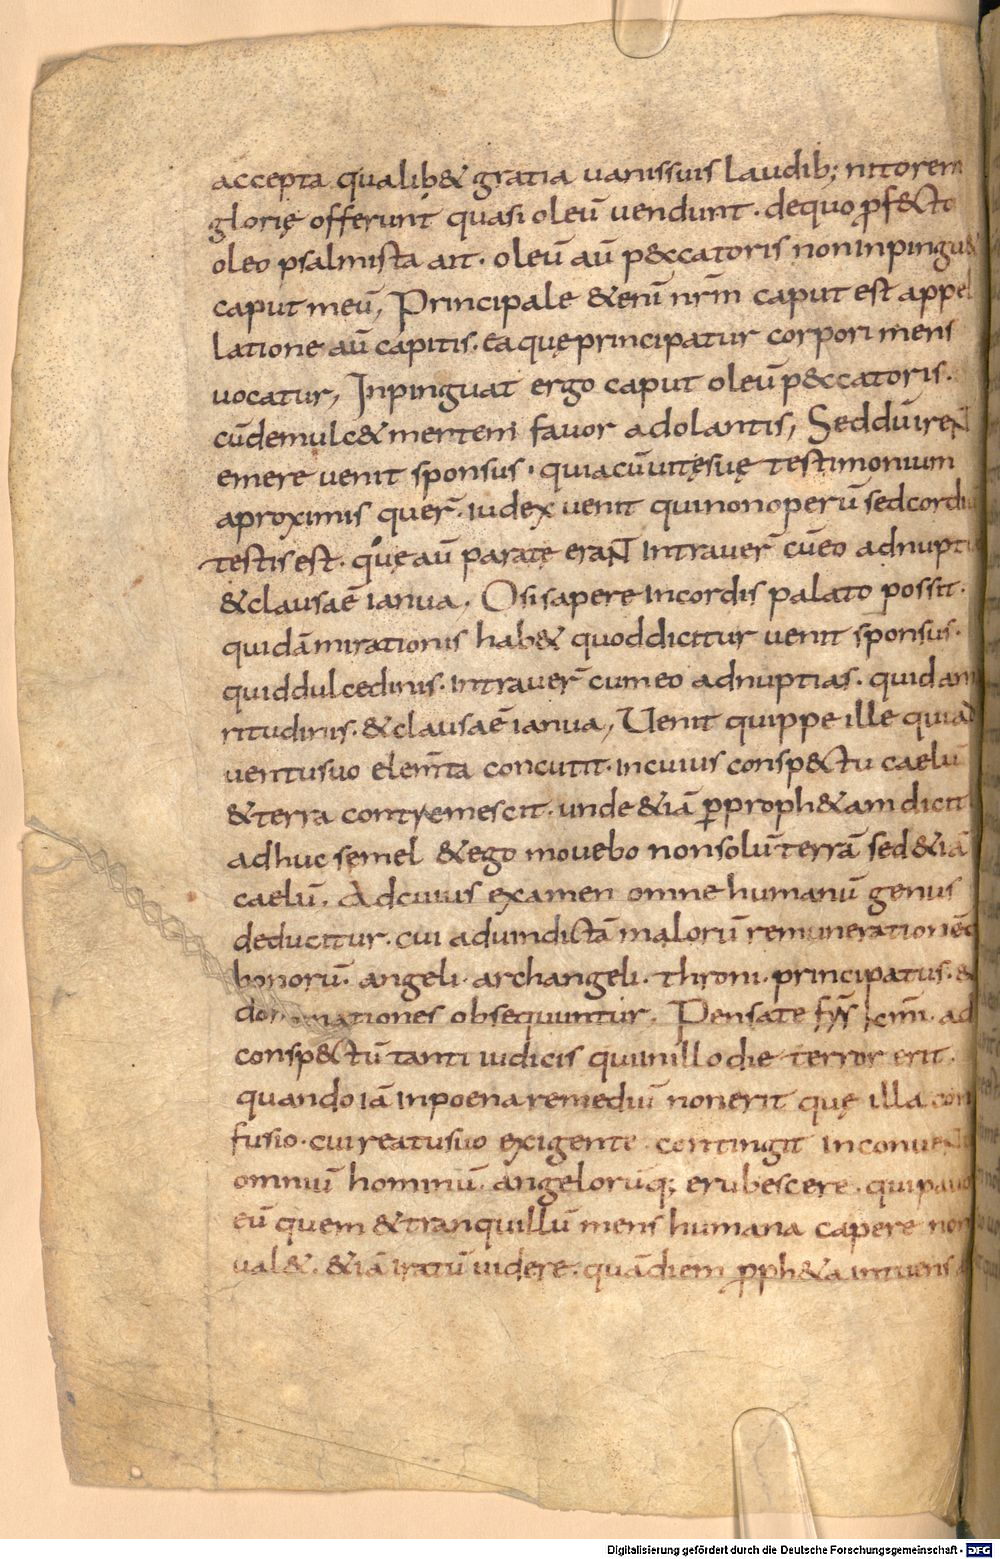 accepta qualib& gratia uanissuis laudib; nitorem
glorię offerunt quasi oleū uendunt · dequo ꝓf&cto
oleo psalmista ait · oleū aū p&ccatoris noninpingu&
caput meū, Principale &enī nr̄m caput est appel
latione aū capitis · ea quęprincipatur corpori mens
uocatur, Inpinguat ergo caput oleū p&ccatoris ·
cūdemulc& mentem fauor adolantis, Seddū ireNt
emere uenit sponsus · quiacūuitęsuę testimonium
aproximis quer̄ · iudex uenit quinonoperū sedcordiū
testis est · quę aū paratę eraNT intrauer̄ cūeo adnuptias
&clausaē ianua, Osisapere incordis palato possit ·
quidāmirationis hab& quoddicitur uenit sponsus ·
quiddulcedinis · intrauer̄ cumeo adnuptias · quid am
ritudinis · &clausaē ianua, Uenit quippe ille quiad
uentusuo elem̄ta concutit · incuius consp&ctu caelū
&terra contremescit · unde &iā ꝑproph&am dicit
adhuc semel &ego mouebo nonsolū terrā sed &iā
caelū. Adcuius examen omne humanū genus
deducitur · cui aduindictā malorū remunerationēq
bonorū · angeli · archangeli · throni · principatus · &
dominationes obsequuntur. Pensate fr̄s kmī · ad
consp&ctū tanti iudicis quiinillo die terror erit ·
quando iā inpoena remediū nonerit quę illa con
fusio · cui reatusuo exigente contingit inconueNtu
omniū hominū · angelorūq; erubescere · quipauor
eū quem &tranquillū mens humana capere non
ual& · &iā iratū uidere · quādiem ꝓph&a intuens
Digitalisierung gefördert durch die Deutsche Forschungsgemeinschaft - DFG